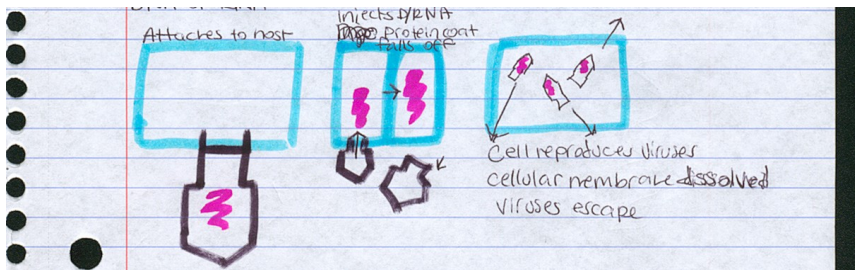 Attaches to host
Injects D/RNA
protein coat
falls off
Cell reproduces viruses
cellular membrane dissolved
viruses escape